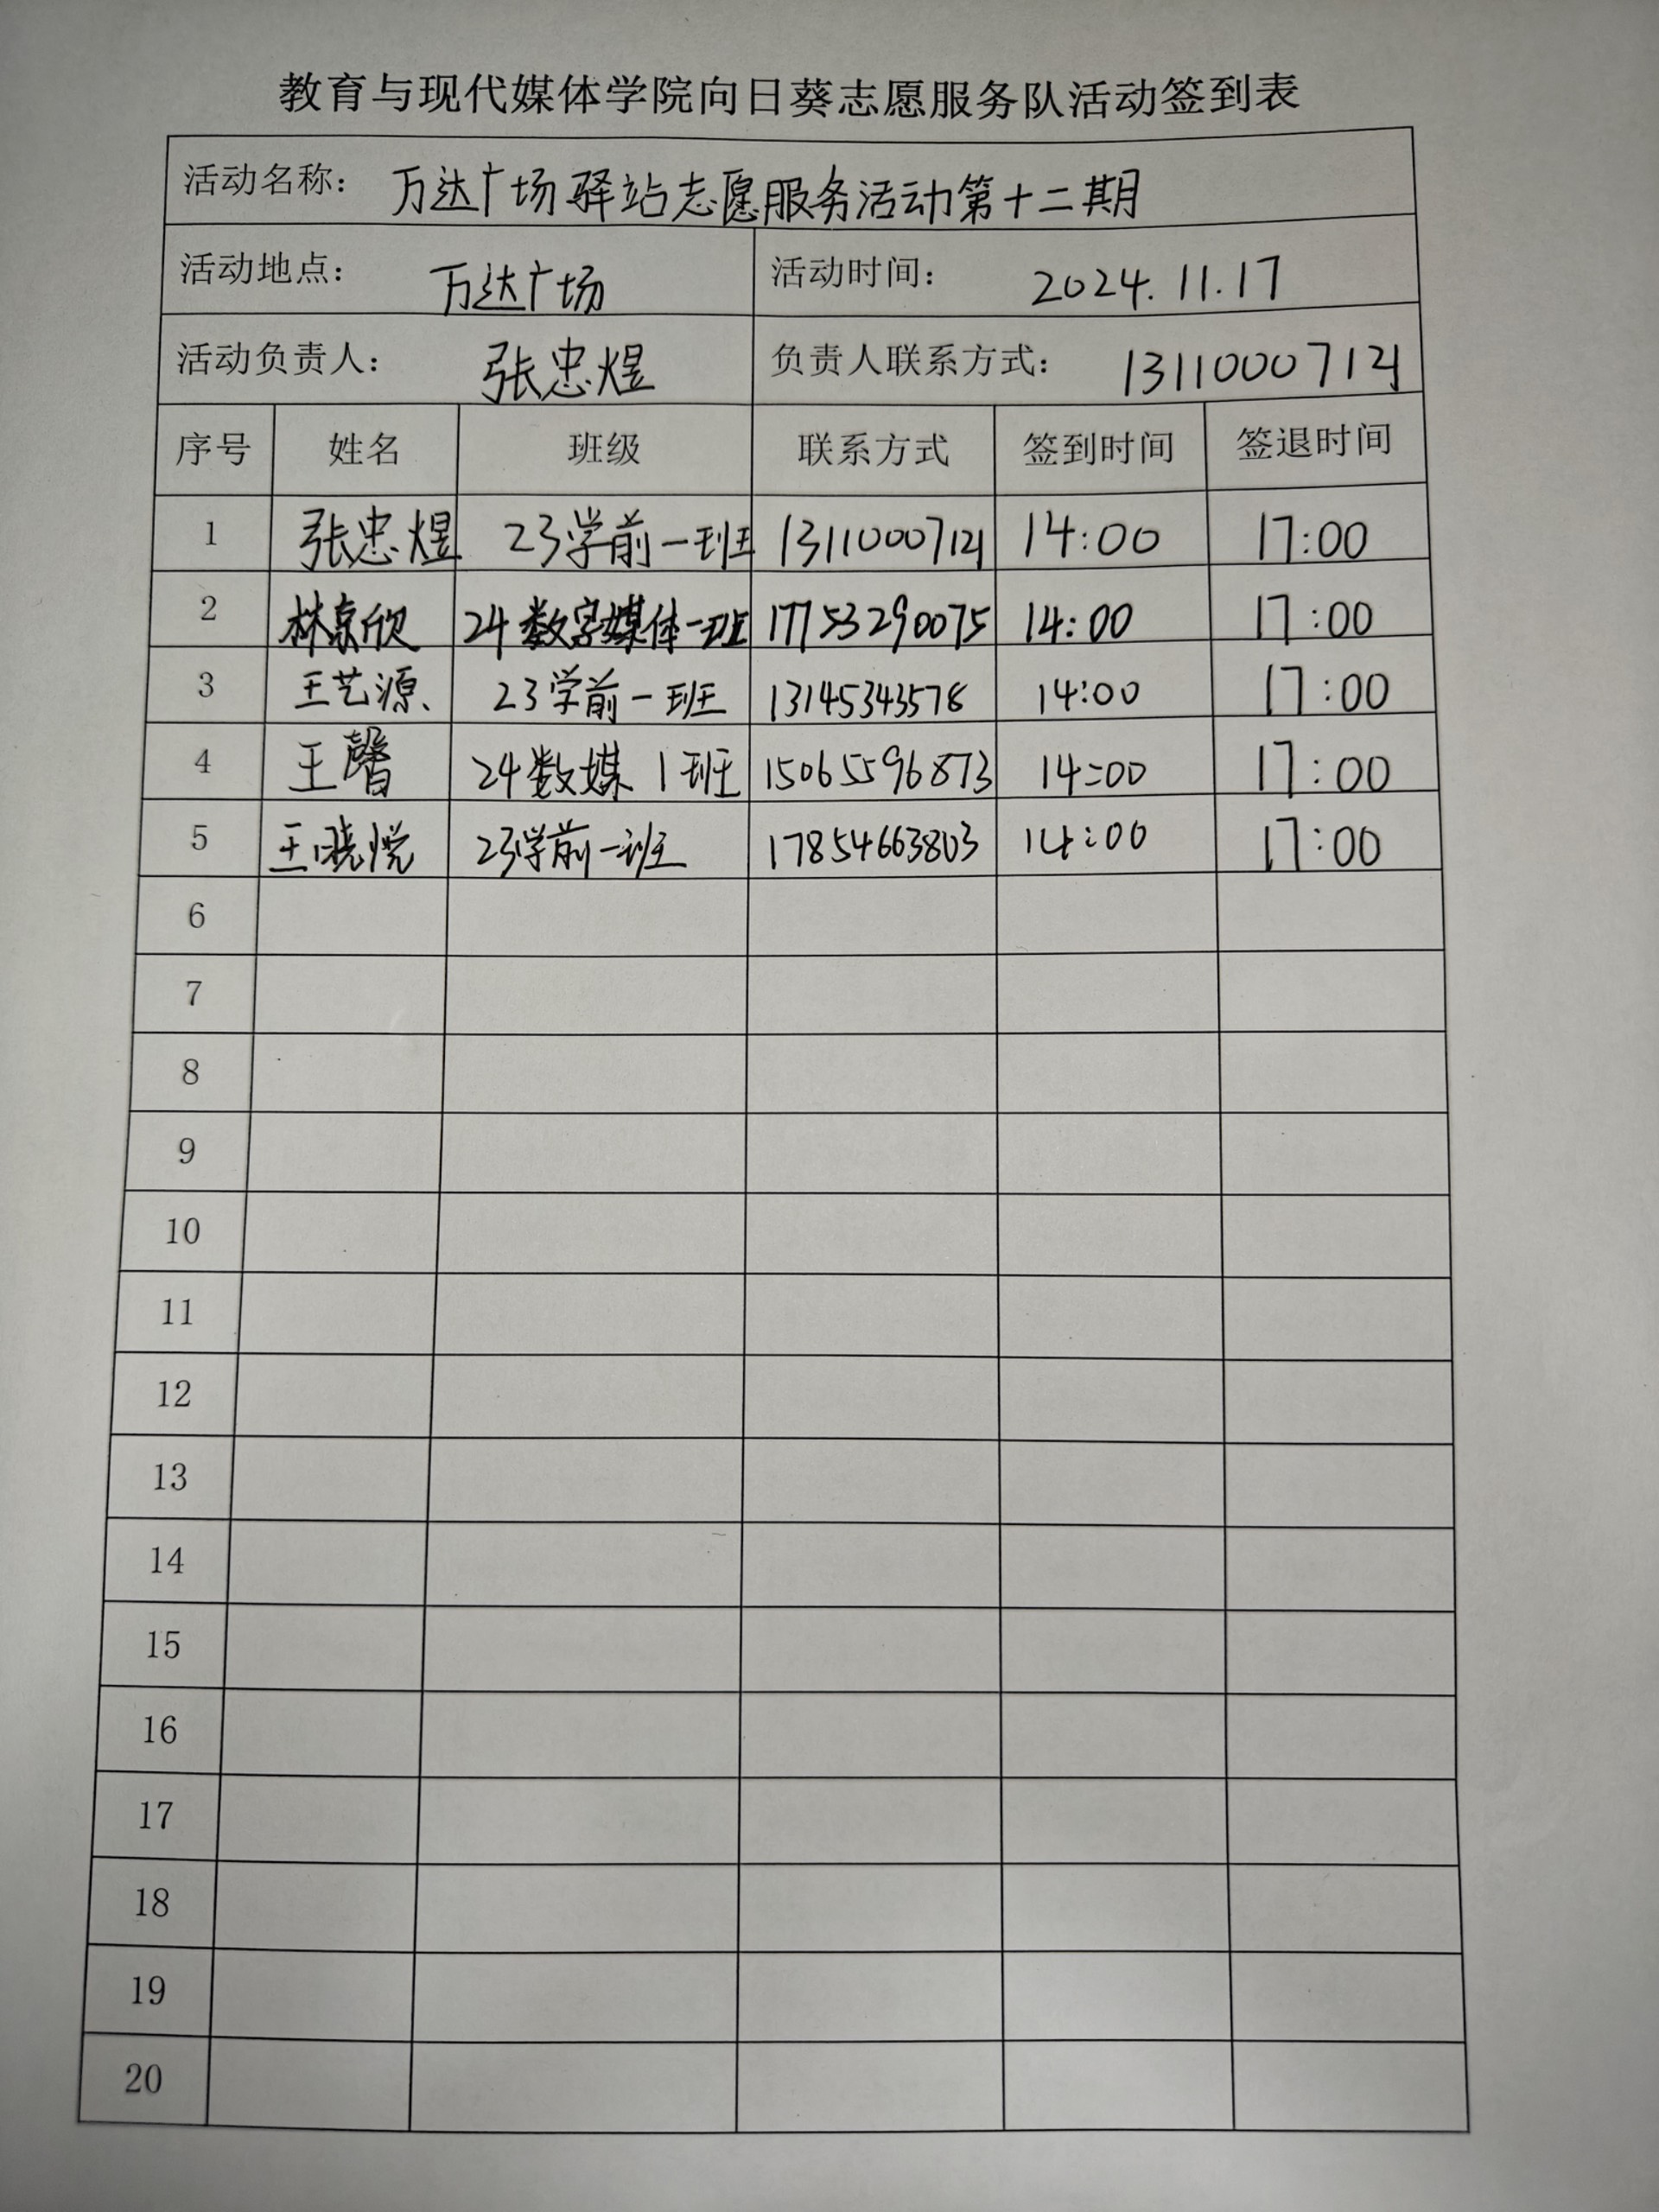 教育与现代媒体学院向日葵志愿服务队活动签到表
活动名称： 万达广场驿站志愿服务活动第十二期
活动地点： 万达广场 活动时间： 2024.11.17
活动负责人： 张忠煜 负责人联系方式： 13110007121
序号 姓名 班级 联系方式 签到时间 签退时间
1 张忠煜 23学前一班 13110007121 14:00 17:00
2 林京欣 24数字媒体一班 17753290075 14:00 17:00
3 王艺源、 23学前一班 13145343578 14:00 17:00
4 王馨 24数媒1班 15065596873 14:00 17:00
5 王晓悦 23学前一班 17854663803 14:00 17:00
6
7
8
9
10
11
12
13
14
15
16
17
18
19
20